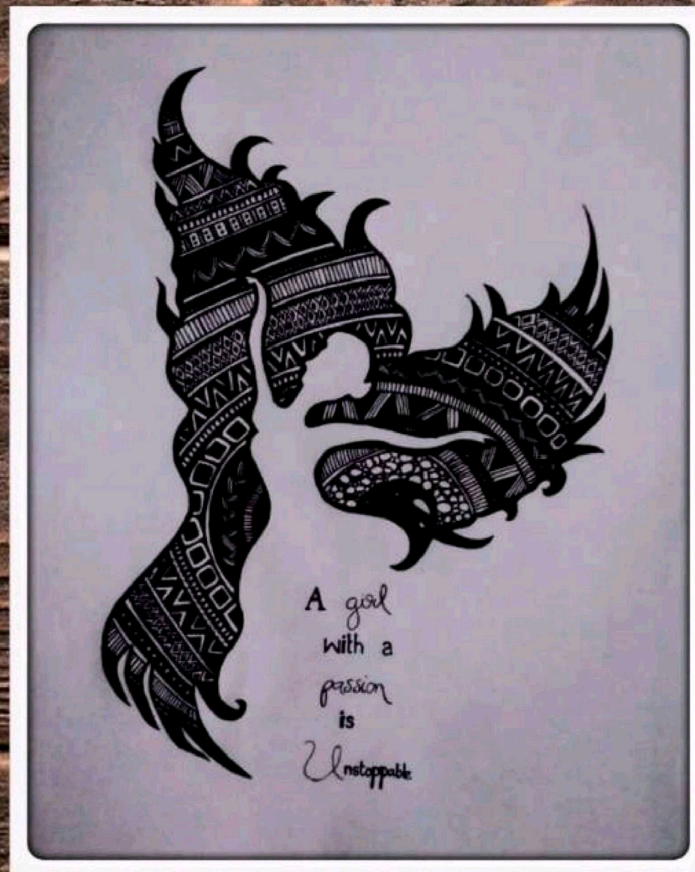 A girl
with a
passion
is
Unstoppable